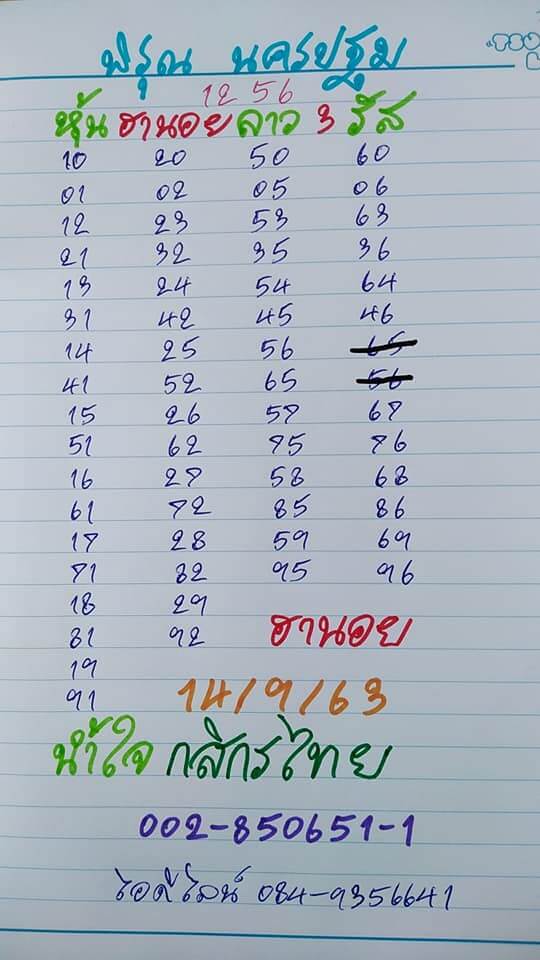 พิรุณ นครปฐม
12 56
หุ้น ฮานอย ลาว 3 รัส
10 20 50 60
01 02 05 06
12 23 53 63
21 32 35 36
13 24 54 64
31 42 45 46
14 25 56 65
41 52 65 56
15 26 57 67
51 62 75 76
16 27 58 68
61 72 85 86
17 28 59 69
71 82 95 96
18 29
81 92 ฮานอย
19
91 14/9/63
น้ำใจ กสิกรไทย
002-850651-1
ไอดีไลน์ 084-9356641